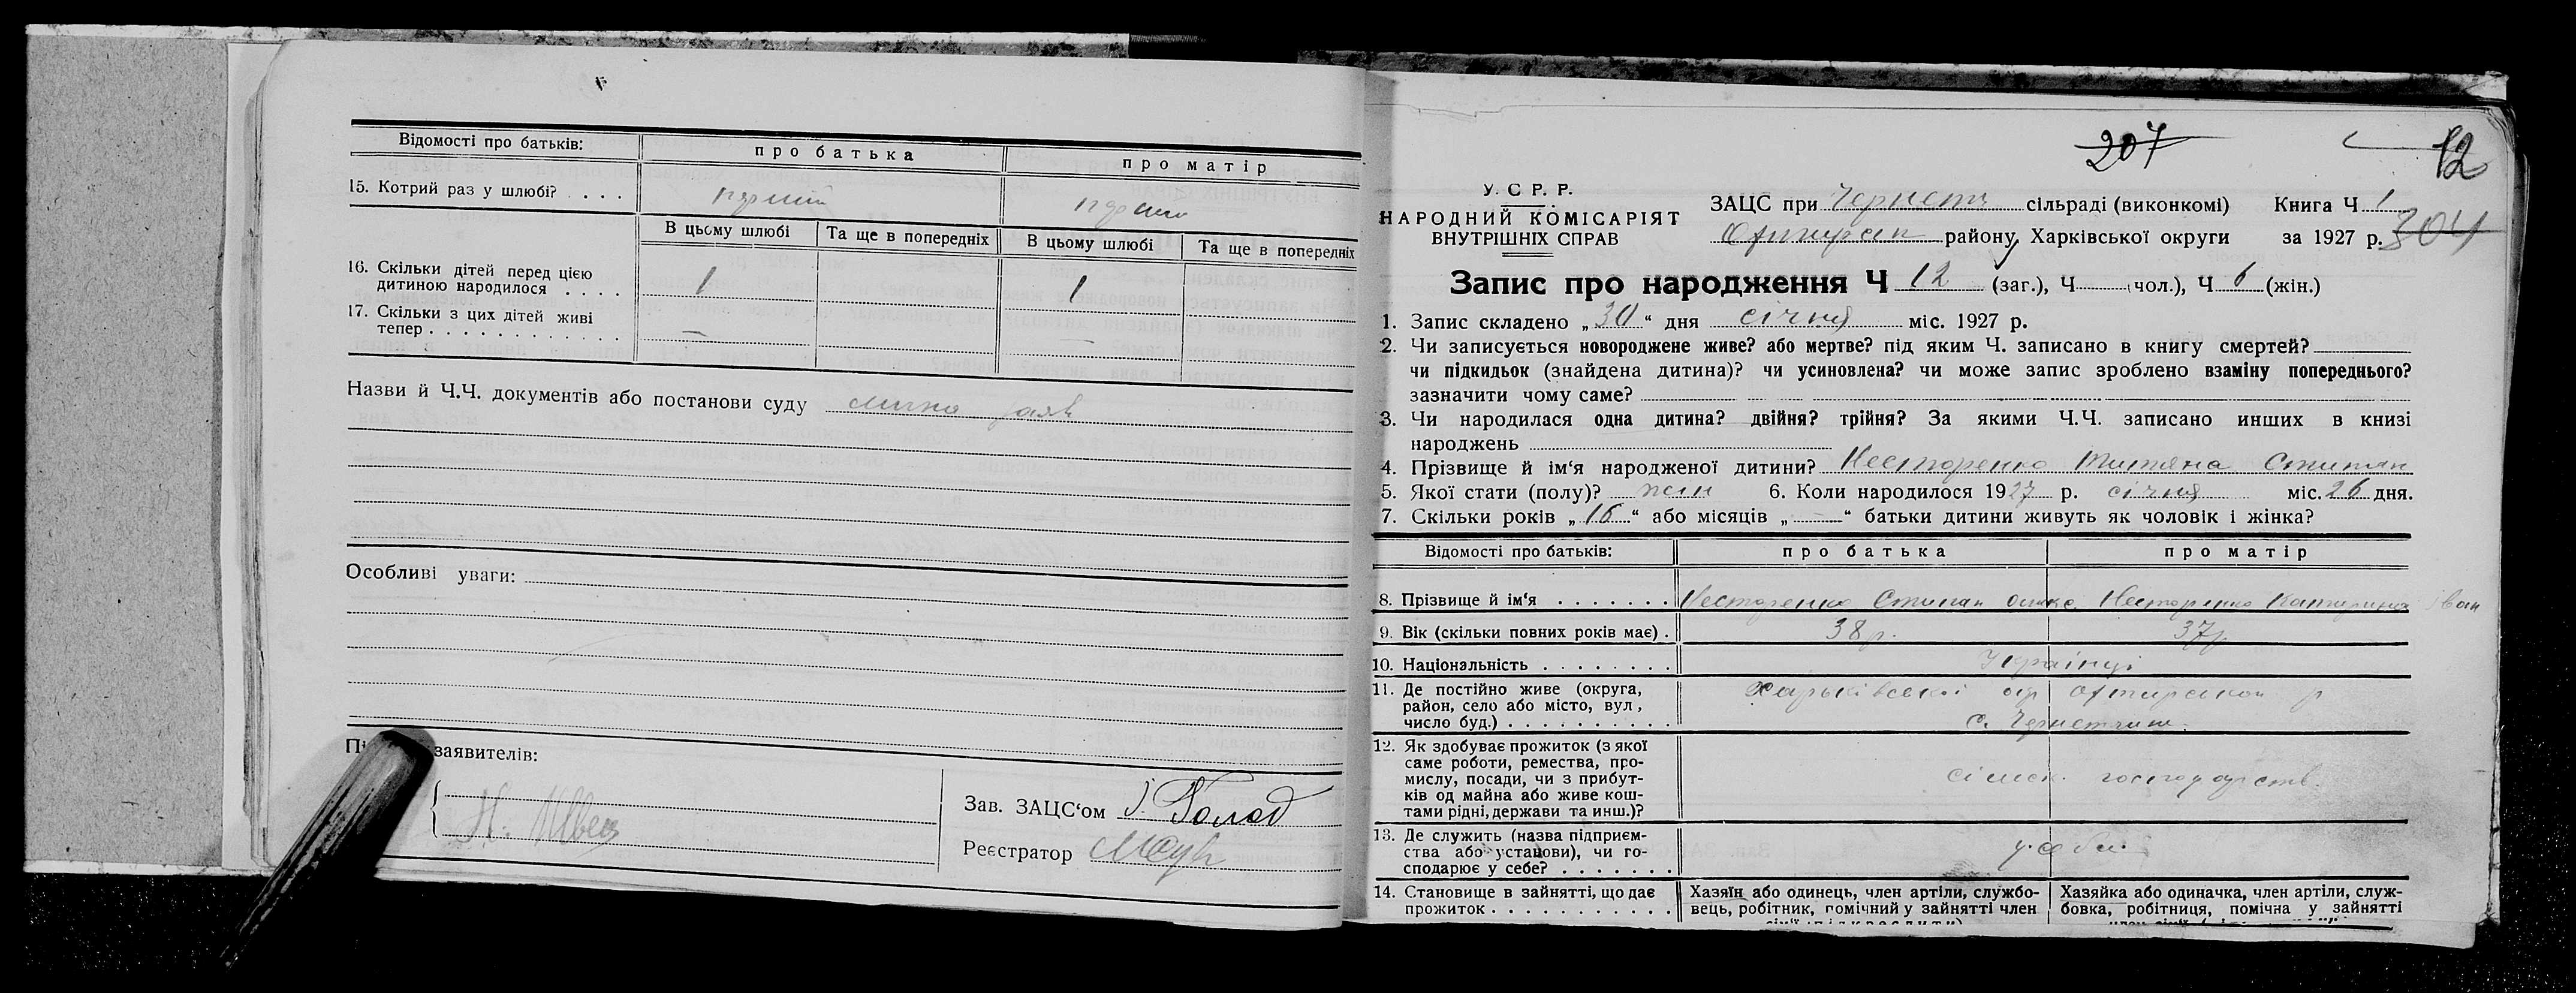 Відомості про батьків: про батька про матір
15. Котрий раз у шлюбі? . . . .
В цьому шлюбі Та ще в попередніх В цьому шлюбі Та ще в попередніх
16. Скільки дітей перед цією
дитиною народилося . . . . 1 1
17. Скільки з цих дітей живі
тепер . . . . . . . . . . . . — —
Назви й Ч.Ч. документів або постанови суду
Особливі уваги:
заявителів:
Н. Швец
Зав. ЗАЦС'ом Голод
Реєстратор
207
12
У. С Р. Р.
НАРОДНИЙ КОМІСАРІЯТ
ВНУТРІШНІХ СПРАВ
ЗАЦС при сільраді (виконкомі) Книга Ч 1
району, Харківської округи за 1927 р. 304
Запис про народження Ч 12 (заг.), Ч чол.), Ч 6 (жін.)
1. Запис складено „30“ дня січня міс. 1927 р.
2. Чи записується новороджене живе? або мертве? під яким Ч. записано в книгу смертей?
чи підкидьок (знайдена дитина)? чи усиновлена? чи може запис зроблено взаміну попереднього?
зазначити чому саме?
3. Чи народилася одна дитина? двійня? трійня? За якими Ч.Ч. записано инших в книзі
народжень
4. Прізвище й ім'я народженої дитини? Несторенко Титяна Стипан
5. Якої стати (полу)? жін 6. Коли народилося 1927 р. січня міс. 26 дня.
7. Скільки років „16“ або місяців „—“ батьки дитини живуть як чоловік і жінка?
Відомості про батьків: про батька про матір
8. Прізвище й ім'я . . . . . . . Несторенко Стипан Несторенко Катирина Іван
9. Вік (скільки повних років має) . 38 р. 37 р
10. Національність . . . . . . . . Українці
11. Де постійно живе (округа,
район, село або місто, вул,
число буд.) . . . . . . . . . . . Харьківської окр Охтирської р
с.
12. Як здобуває прожиток (з якої
саме роботи, ремества, про-
мислу, посади, чи з прибут-
ків од майна або живе кош-
тами рідні, держави та инш.)? сільск. господарств.
13. Де служить (назва підприєм-
ства або установи), чи го-
сподарює у себе? . . . . . . . у себе
14. Становище в зайнятті, що дає Хазяїн або одинець, член артіли, службо- Хазяйка або одиначка, член артіли, служ-
прожиток . . . . . . . . . . . вець, робітник, помічний у зайнятті член бовка, робітниця, помічна у зайнятті